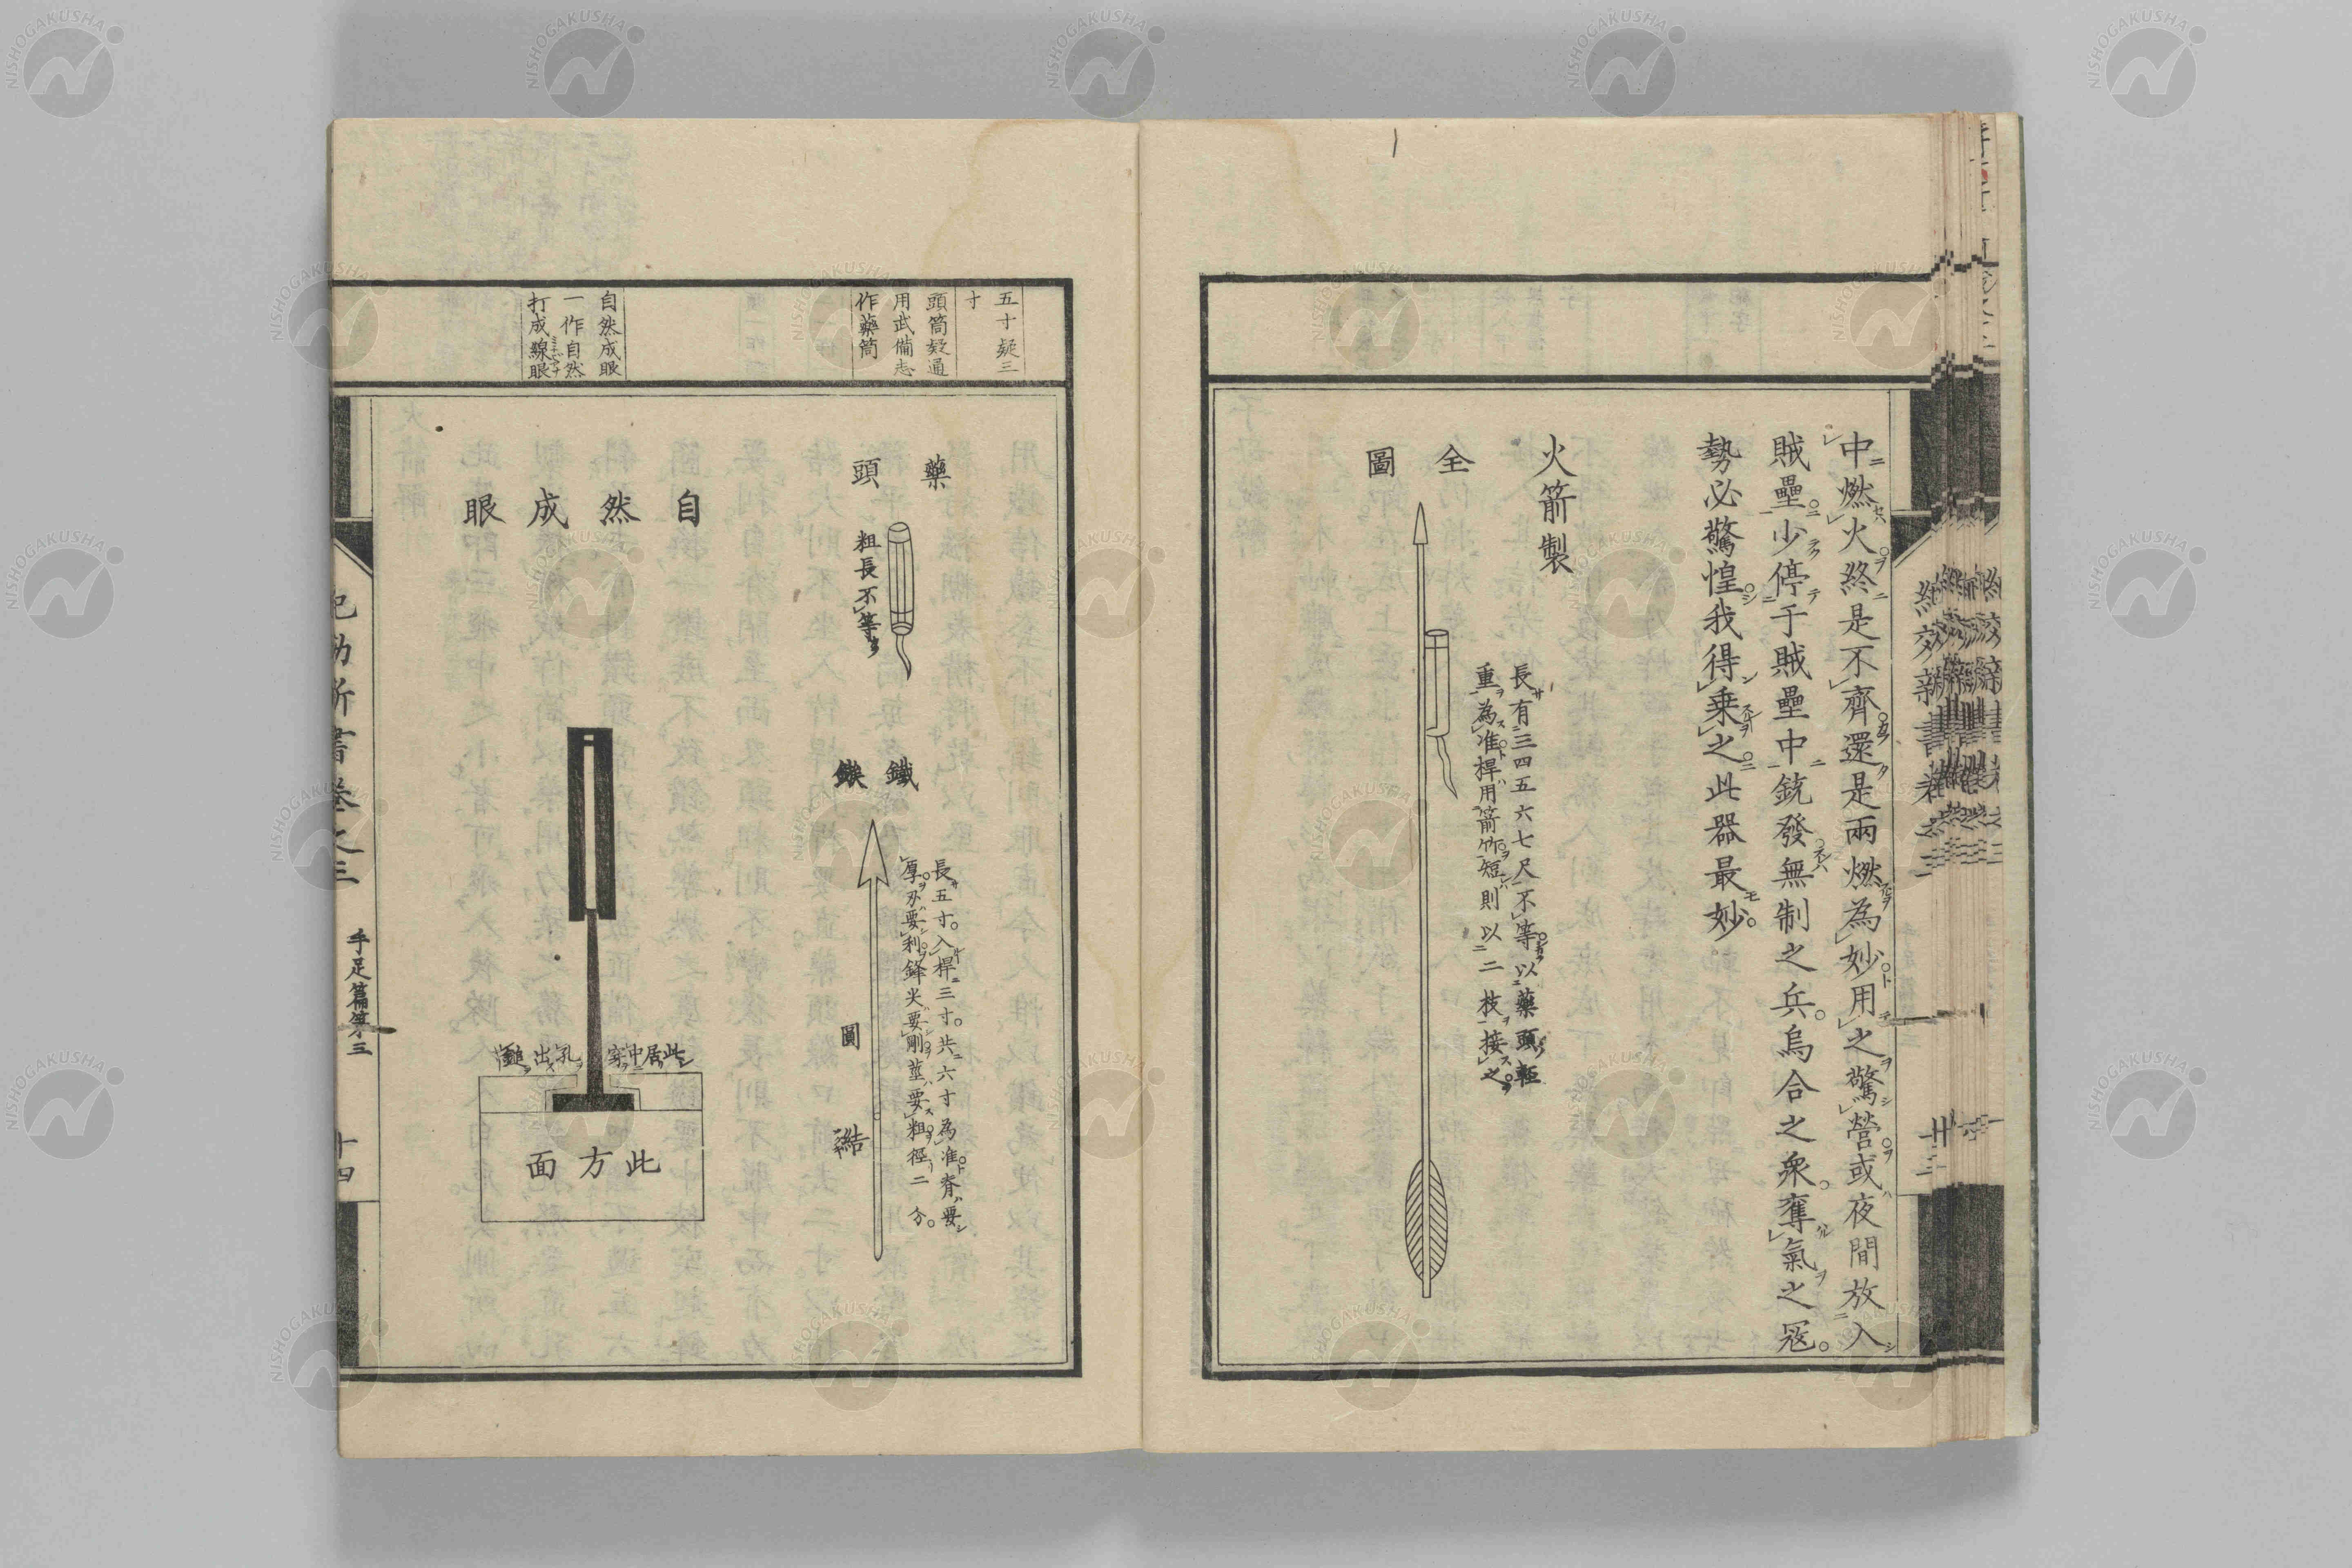 中燃火終是不齊還是兩燃為妙用之驚營或夜間放入
賊壘少停于賊壘中銃發無制之兵烏合之衆奪氣之冦
勢必驚惶我得乗之此器最妙
火箭製
全圖
長有三四五六七尺不等以藥頭軽
重為准桿用箭竹短則以二枝接之
五寸疑三
寸
頭筒疑通
用武備志
作藥筒
自然成眼
一作自然
打成線眼
藥頭
粗長不等
鐵鏃
長五寸入桿三寸共六寸為准脊要
厚刃要利鋒尖要剛莖要粗徑二分
圖
結
自然成眼
此居中穿孔出鎚
此方面
紀効新書卷之三
手足篇第三
十四
NISHOGAKUSHA